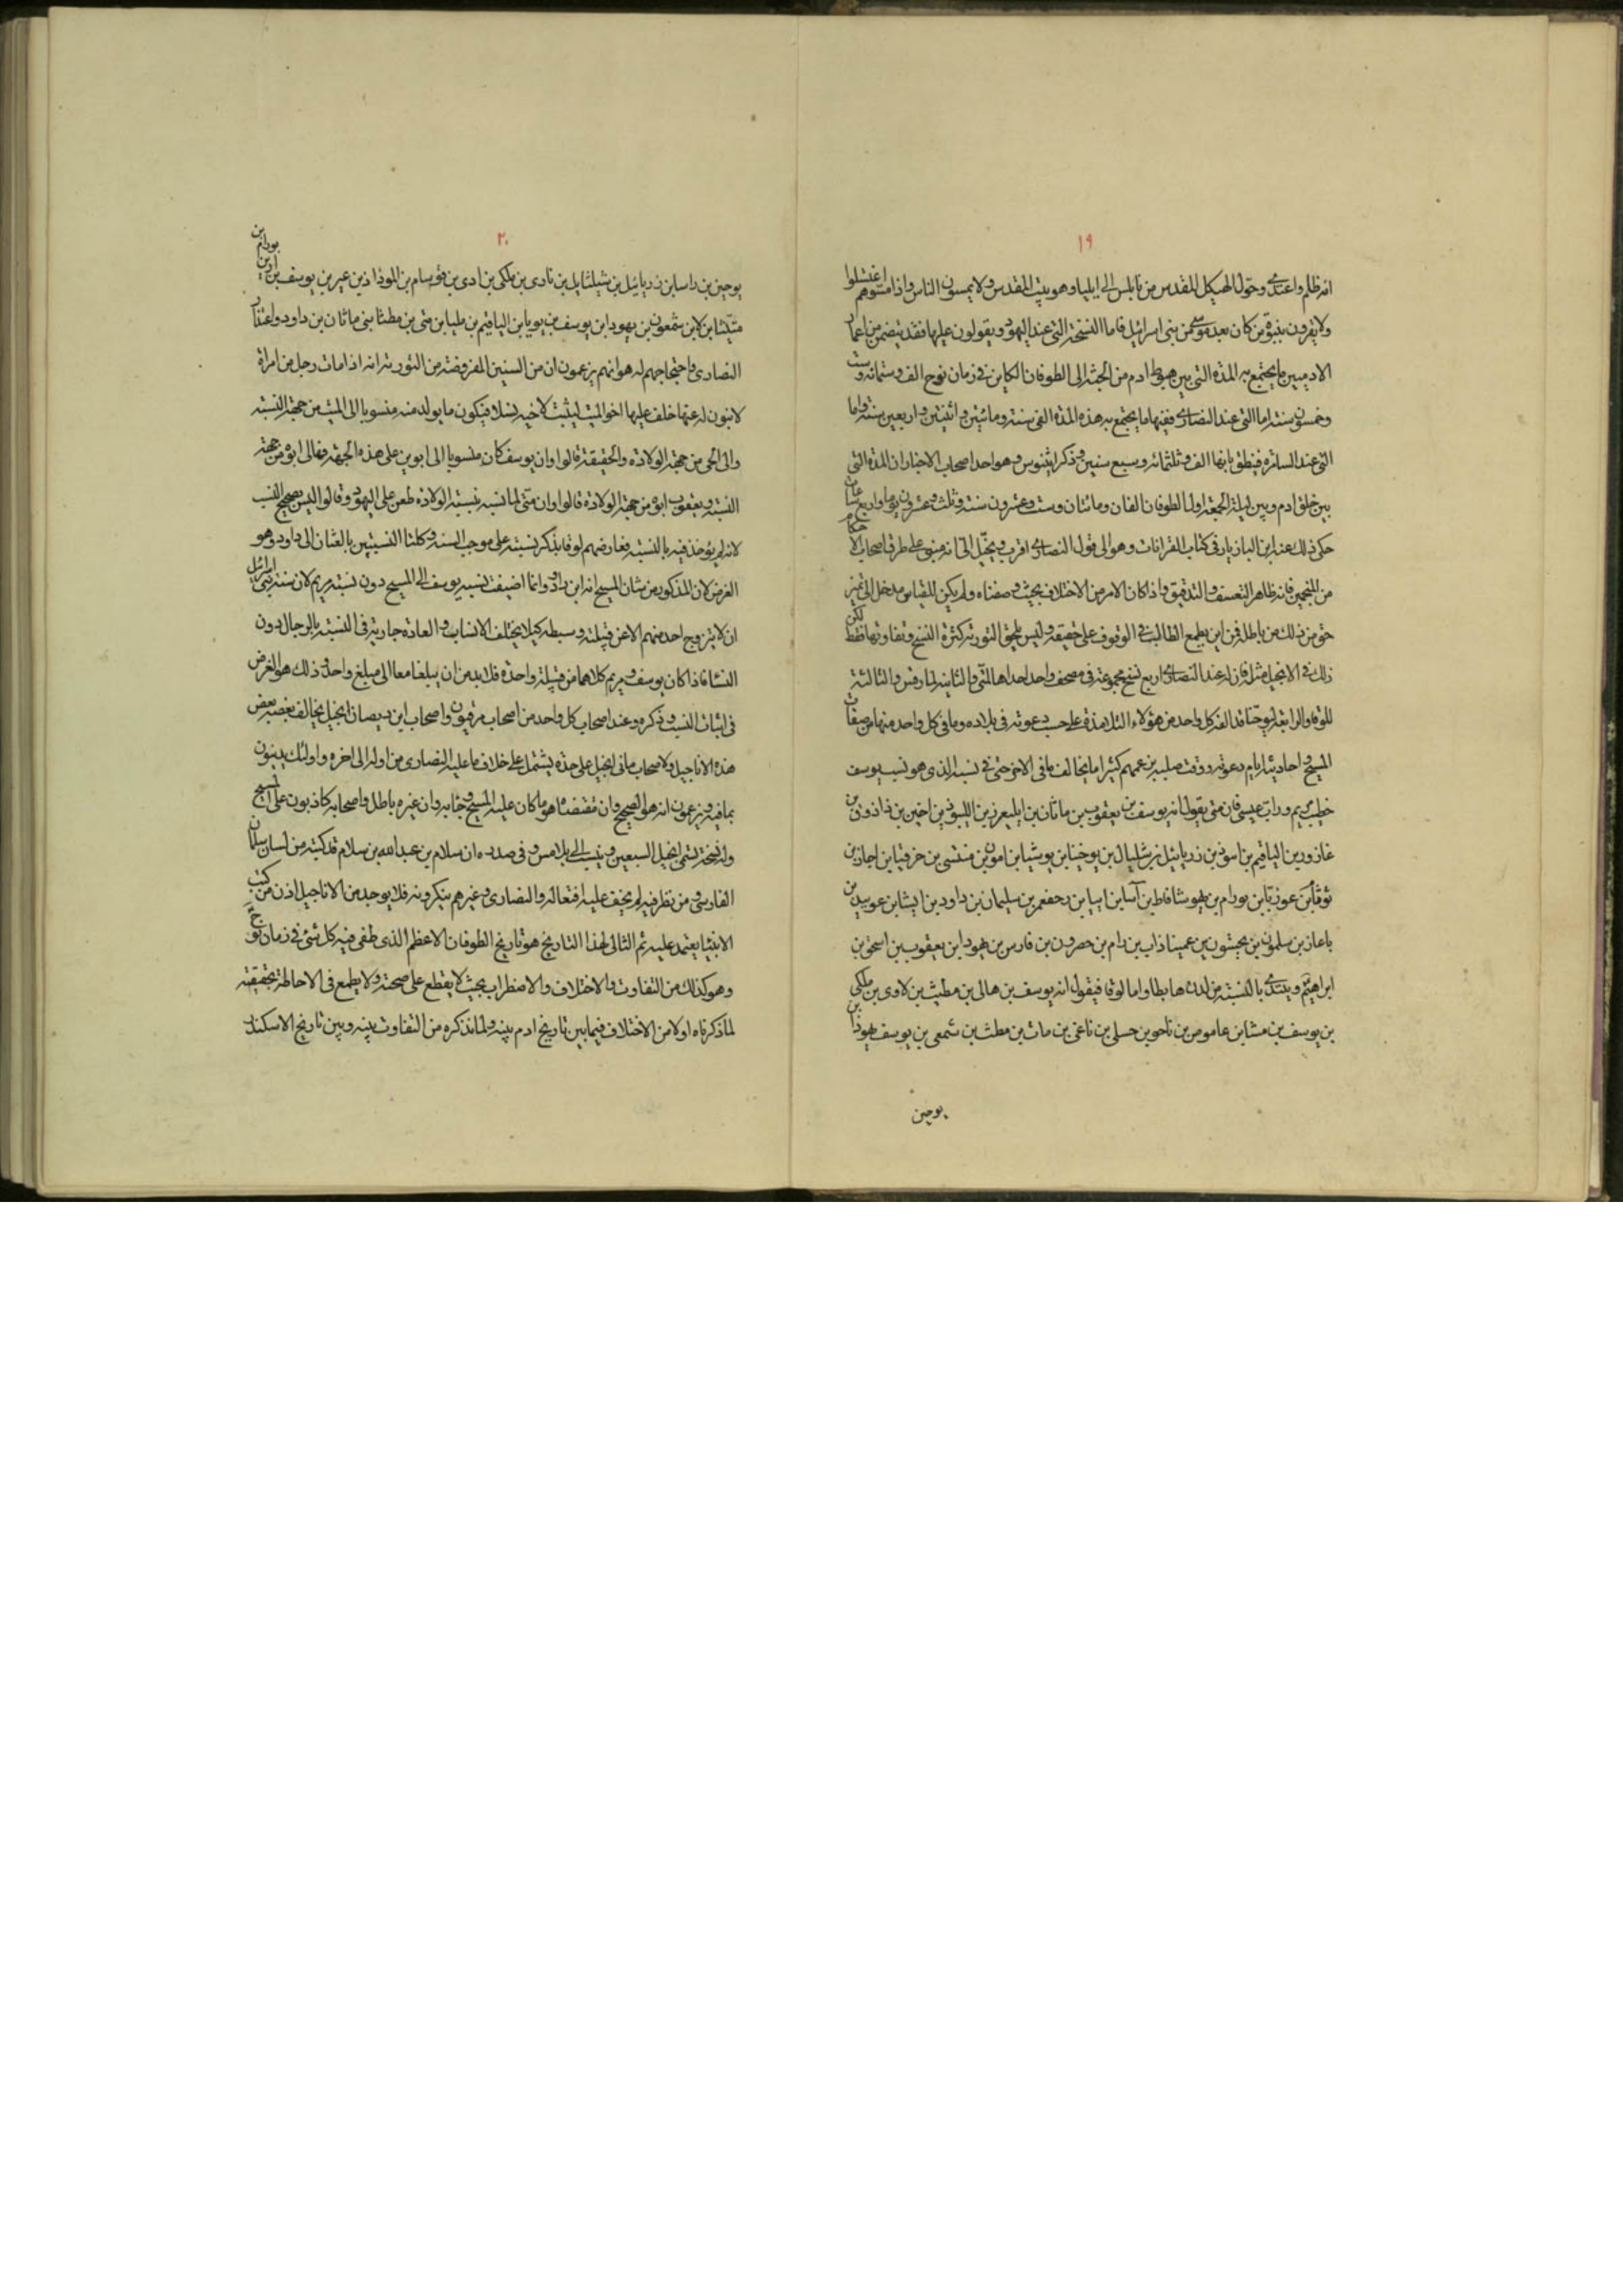 ١٩
انه ظلم واعتدى وحوّل الهيكل المقدس من نابلس الى ايليا وهو بيت المقدس ولا يمسون الناس واذا مسّوهم اغتسلوا
ولا يقرون بنبوة من كان بعد موسى من بنى اسرائيل فاما النسخة التى عند اليهود ويقولون عليها فقد يتضمن من اعمار
الادميين ما يجتمع به المدة التى بين هبوط ادم من الجنة الى الطوفان الكاين فى زمان نوح الف وستمائة وست
وخمسون سنة اما التى عند النصارى ففيها ما يجتمع به هذه المدة الفى سنة ومائتين واثنتين واربعين سنة واما
التى عند السامرة فينطق بانها الف وثلثمائة وسبع سنين وذكر انينوس وهو احد اصحاب الاخبار ان المدة التى
بين خلق ادم وبين ليلة الجمعة اول الطوفان الفان ومائتان وست وعشرون سنة وثلث وعشرون يوما واربع ساعات
حكى ذلك عنه ابن البازيار فى كتاب القرانات وهو الى قول النصارى اقرب ويخيّل الىّ انه مبنى على طرق اصحاب الاحكام
من المنجمين فانه ظاهر التعسف والتدقيق واذا كان الامر من الاختلاف بحيث وصفناه ولم يكن للقياس مدخل الى تميز
حق من ذلك من باطل فمن اين يطمع الطالب فى الوقوف على حقيقه وليس يلحق التورية كثرة النسخ وتفاوتها فقط لكن
ذلك فى الانجيل مثله فان له عند النصارى اربع نسخ مجموعة فى مصحف واحد احداها لمتّى والثانية لمارقس والثالثة
للوقا والرابعة ليوحنا قد الفه كل واحد من هؤلاء التلامذة على حسب دعوته فى بلاده وما فى كل واحد منها من صفات
المسيح واحاديثه ايام دعوته ووقت صلبه بزعمهم كثيرا ما يخالف ما فى الاخر حتى فى نسبه الذى هو نسب يوسف
خطيب مريم وراب عيسى فان متى يقول انه يوسف بن يعقوب بن ماتان بن ايليعزر بن الليوذ بن اخين بن زاذوق بن
عازور بن الياقيم بن ابيوذ بن زربابيل بن شلتيال بن يوخنيا بن يوشيا بن امون بن منشى بن حزقيا بن احاز بن
يوثم بن عوزيا بن يورام بن يهوشافاط بن آسا بن ابيا بن رحبعم بن سليمان بن داود بن ايشا بن عوبيد بن
باعاز بن سلمون بن نحشون بن عميناذاب بن رام بن حصرون بن فارس بن يهودا بن يعقوب بن اسحق بن
ابراهيم ويبتدى بالنسبة من لدنه هابطا واما لوقا فيقول انه يوسف بن هالى بن مطيث بن لاوى بن ملكى
بن يوسف بن متثا بن عاموص بن ناحو بن حسلى بن ناغى بن مات بن مطث بن شمعى بن يوسف بن يهوذا
يوحين
٢٠
يوحين بن راسا بن زربائيل بن شيلثايل بن نادى بن ملكى بن ادى بن قوسام بن المودا ذ بن عير بن يوسف بن اذير بن يورام بن
متيثا بن لاين شمعون بن يهودا بن يوسف بن يويا بن الياقيم بن مليا بن متى بن مطثا بنى ماثان بن داود واعتذار
النصارى واحتجاجهم له هو انهم يزعمون ان من السنين المفروضة من التورية انه اذا مات رجل من امراة
لابنون له عنها خلف عليها اخو الميت ليثبت لاخيه نسلا فيكون ما يولد منه منسوبا الى الميت من جهة النسبة
والى الحى من جهة الولادة والحقيقة قالوا وان يوسف كان منسوبا الى ابوين على هذه الجهة وهالى ابوه من جهة
النسبة ويعقوب ابوه من جهة الولادة قالوا وان متّى لما نسبه بنسبة الولادة طعن على اليهود وقالوا ليس بصحيح النسب
لانه لم يؤخذ فيه بالنسبة فعارضهم لوقا بذكر نسبته على موجب السنة وكلتا النسبتين بالغتان الى داود وهو
الغرض لان المذكور من شان المسيح انه ابن داود وانما اضيفت نسبه يوسف الى المسيح دون نسبة مريم لان سنة بنى اسرائيل
ان لا يتزوج احد منهم الا عن قبيلته وسبطه كيلا يختلف الانساب والعادة جارية فى النسبة بالرجال دون
النسا فاذا كان يوسف ومريم كلاهما من قبيلة واحدة فلا بد من ان يبلغا معا الى مبلغ واحد وذلك هو الغرض
فى اثبات النسب وذكره وعند اصحاب كل واحد من اصحاب مرقيون واصحاب ابن ديصان انجيل يخالف بعضه بعض
هذه الاناجيل ولاصحاب مانى انجيل على حدة يشتمل على خلاف ما عليه النصارى من اوله الى اخره واولئك يدينون
بما فيه ويزعمون انه هو الصحيح وان مقتضاه هو ما كان عليه المسيح وجاء به وان غيره باطل واصحابه كاذبون على المسيح
وله نسخة تسمى انجيل السبعين وينسب الى بلامس وفى صدره ان سلام بن عبد الله بن سلام قد كتبه من لسان سلمان
الفارسى ومن نظر فيه لم يخف عليه افتعاله والنصارى وغيرهم ينكرونه فلا يوجد من الاناجيل اذن من كتب
الانبيا يعتمد عليه ثم الثالى لهذا التاريخ هو تاريخ الطوفان الاعظم الذى طفى فيه كل شئ فى زمان نوح
وهو كذلك من التفاوت والاختلاف والاضطراب بحيث لا يقطع على صحته ولا يطمع فى الاحاطة بحقيقته
لما ذكرناه اولا من الاختلاف فيما بين تاريخ ادم بينه ولما نذكره من التفاوت بينه وبين تاريخ الاسكندر